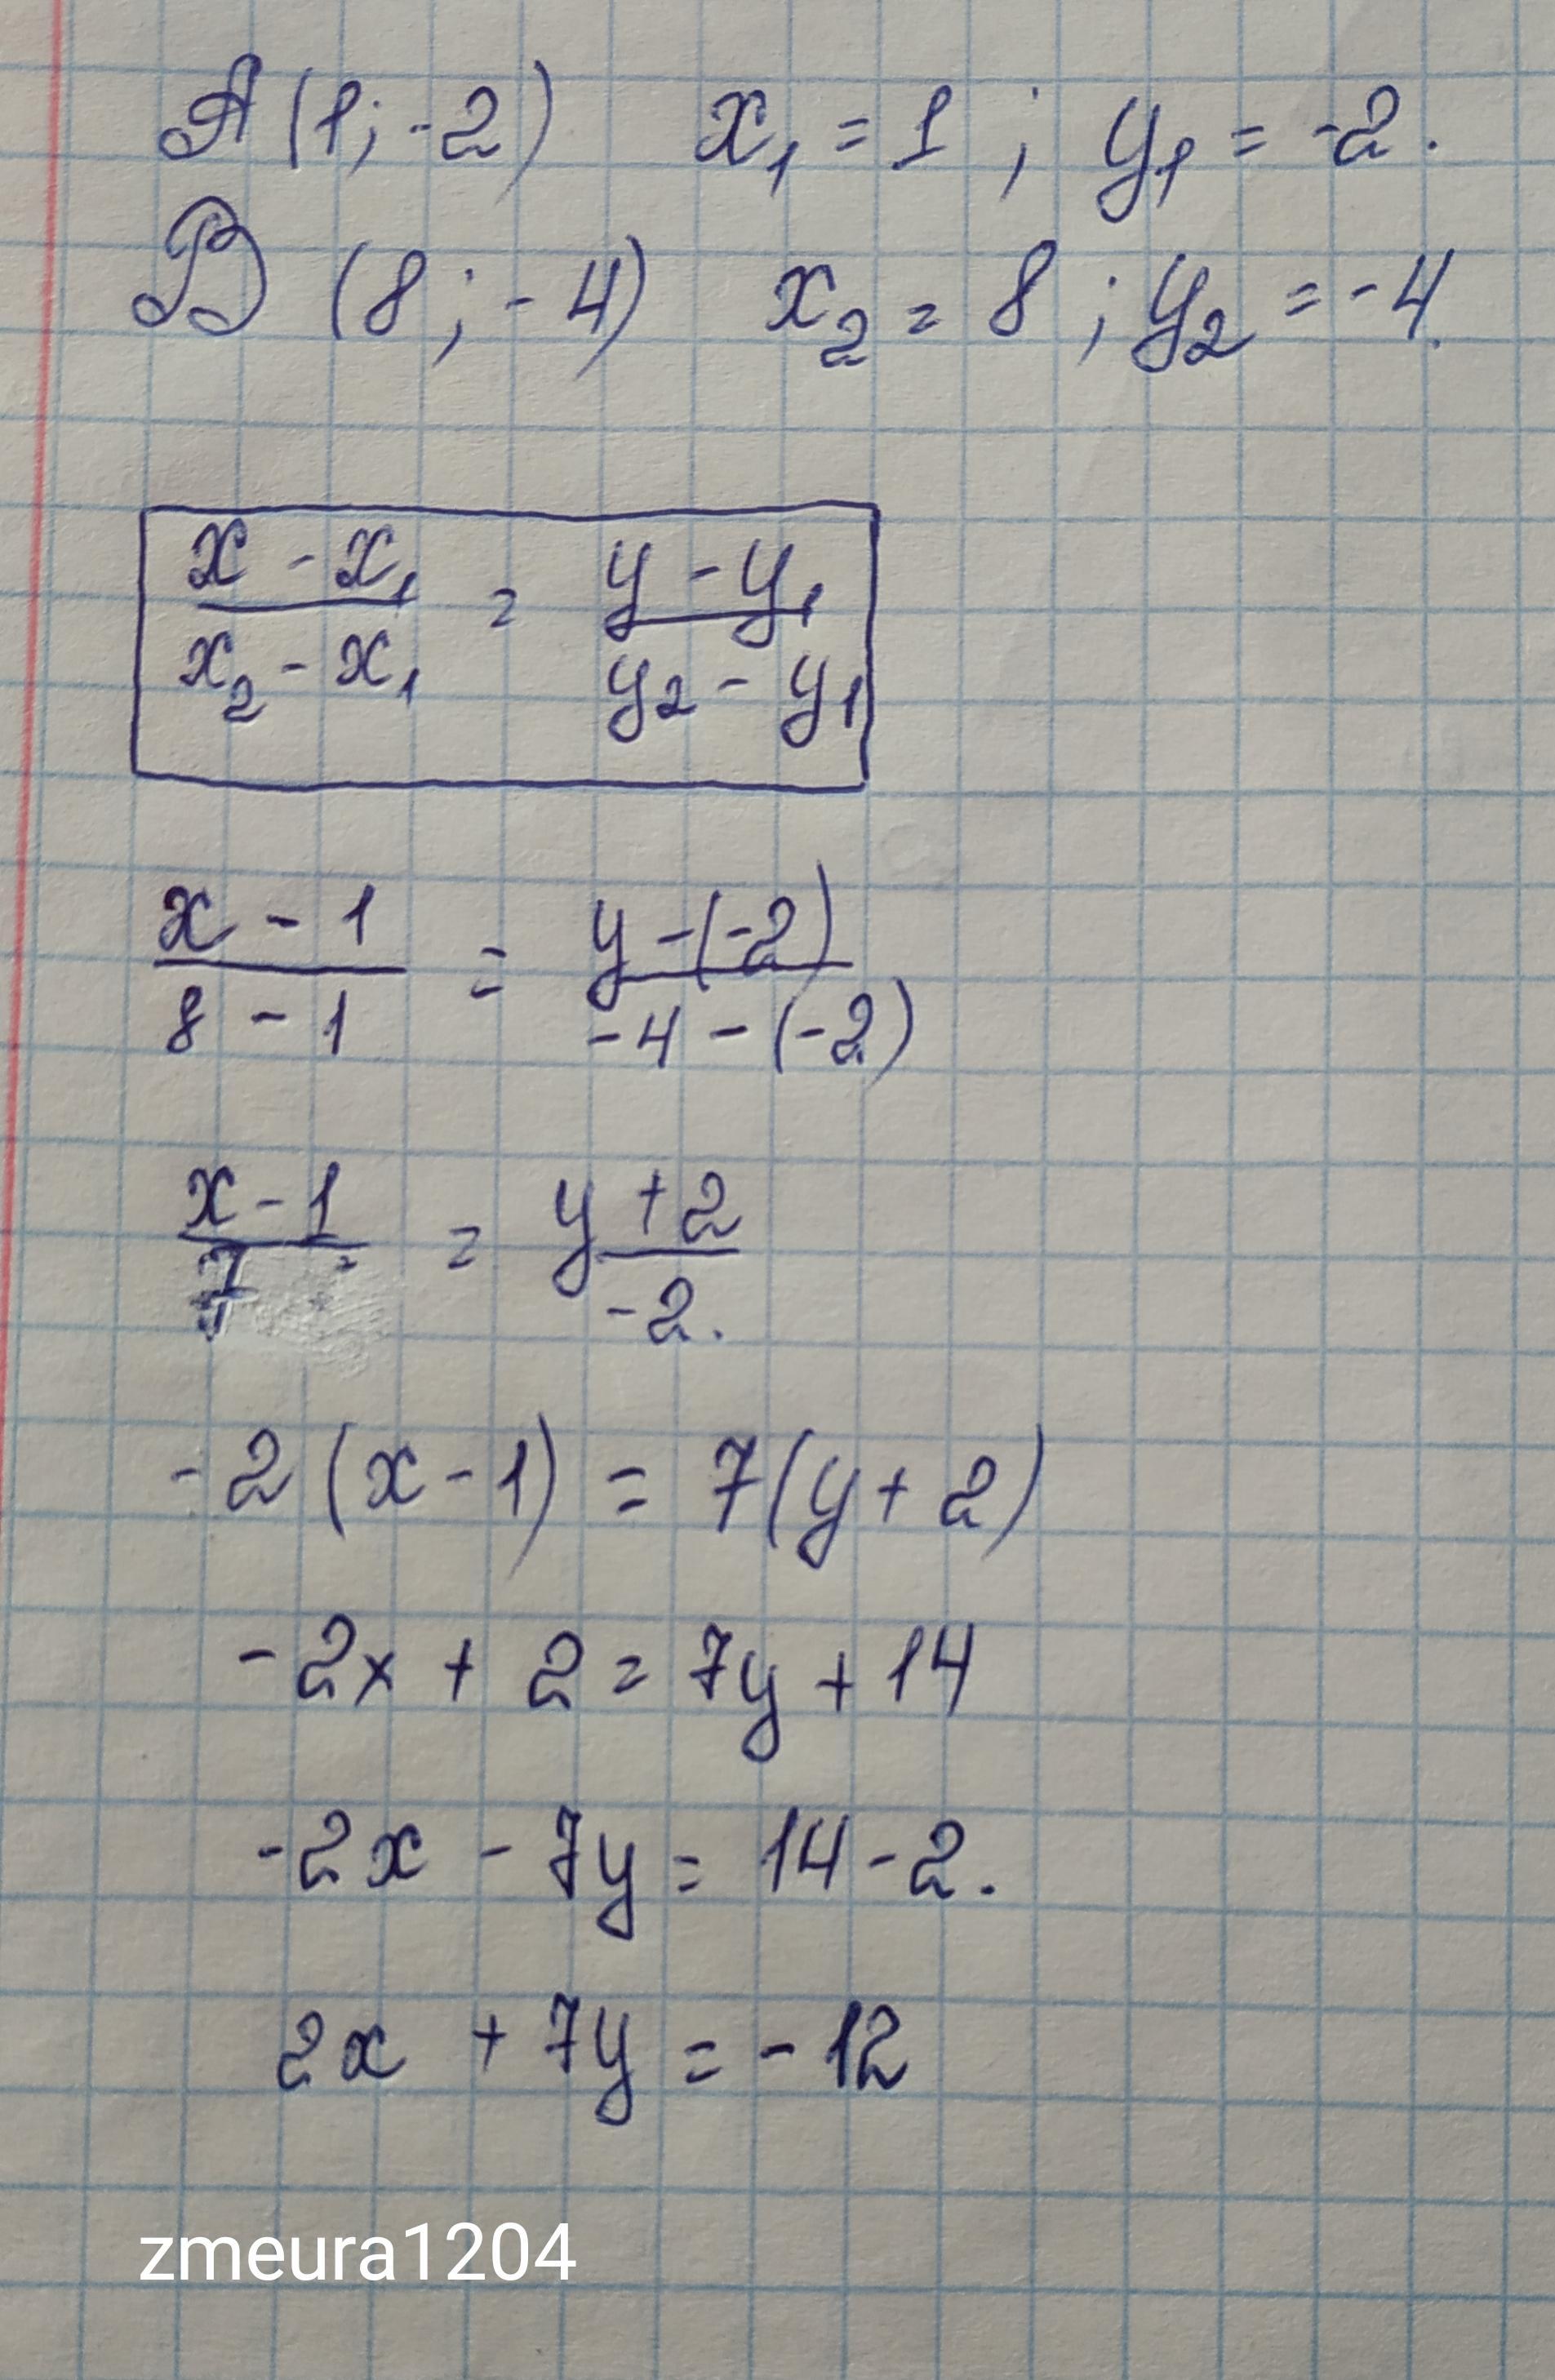 A (1; -2) x₁ = 1 ; y₁ = -2.
B (8 ; - 4) x₂ = 8 ; y₂ = - 4.
x - x₁ / x₂ - x₁ = y - y₁ / y₂ - y₁
x - 1 / 8 - 1 = y -(-2) / -4 - (-2)
x - 1 / 7 = y + 2 / -2.
-2 (x - 1) = 7(y + 2)
-2x + 2 = 7y + 14
-2x - 7y = 14 - 2.
2x + 7y = - 12
zmeura1204